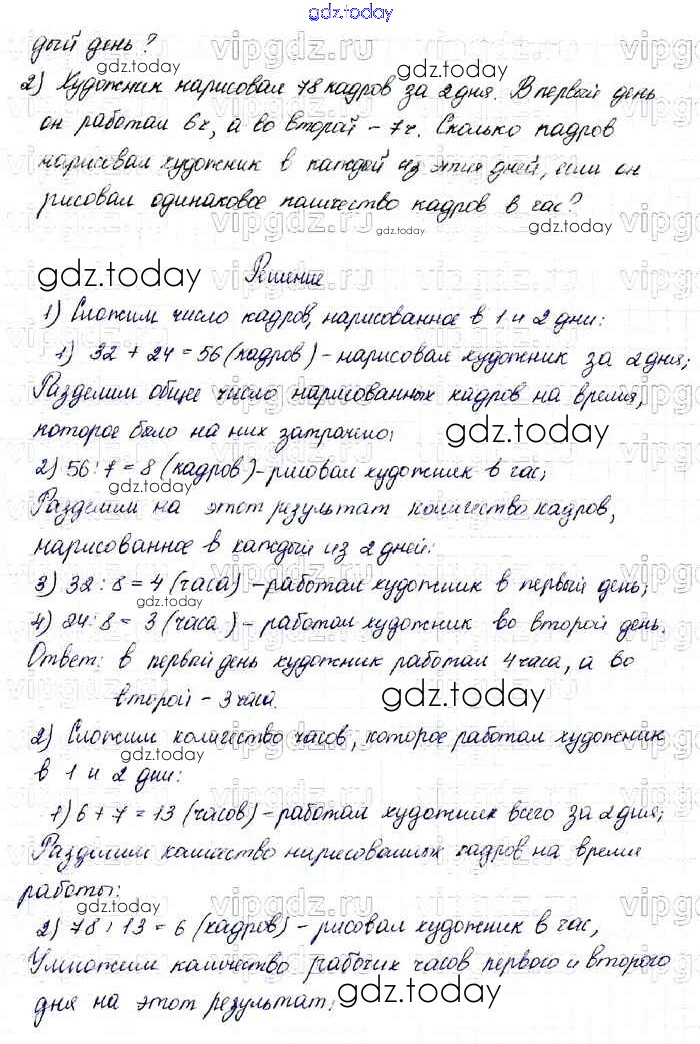 gdz.today
дый день?
2) Художник нарисовал 78 кадров за 2 дня. В первый день
он работал 6ч, а во второй – 7ч. Сколько кадров
нарисовал художник в каждый из этих дней, если он
рисовал одинаковое количество кадров в час?
Решение
1) Сложим число кадров, нарисованное в 1 и 2 дни:
1) 32 + 24 = 56 (кадров) – нарисовал художник за 2 дня;
Разделим общее число нарисованных кадров на время,
которое было на них затрачено;
2) 56 : 7 = 8 (кадров) – рисовал художник в час;
Разделим на этот результат количество кадров,
нарисованное в каждый из 2 дней:
3) 32 : 8 = 4 (часа) – работал художник в первый день;
4) 24 : 8 = 3 (часа) – работал художник во второй день.
Ответ: в первый день художник работал 4 часа, а во
второй – 3 часа.
2) Сложим количество часов, которое работал художник
в 1 и 2 дни:
1) 6 + 7 = 13 (часов) – работал художник всего за 2 дня;
Разделим количество нарисованных кадров на время
работы:
2) 78 : 13 = 6 (кадров) – рисовал художник в час,
Умножим количество рабочих часов первого и второго
дня на этот результат:
gdz.today